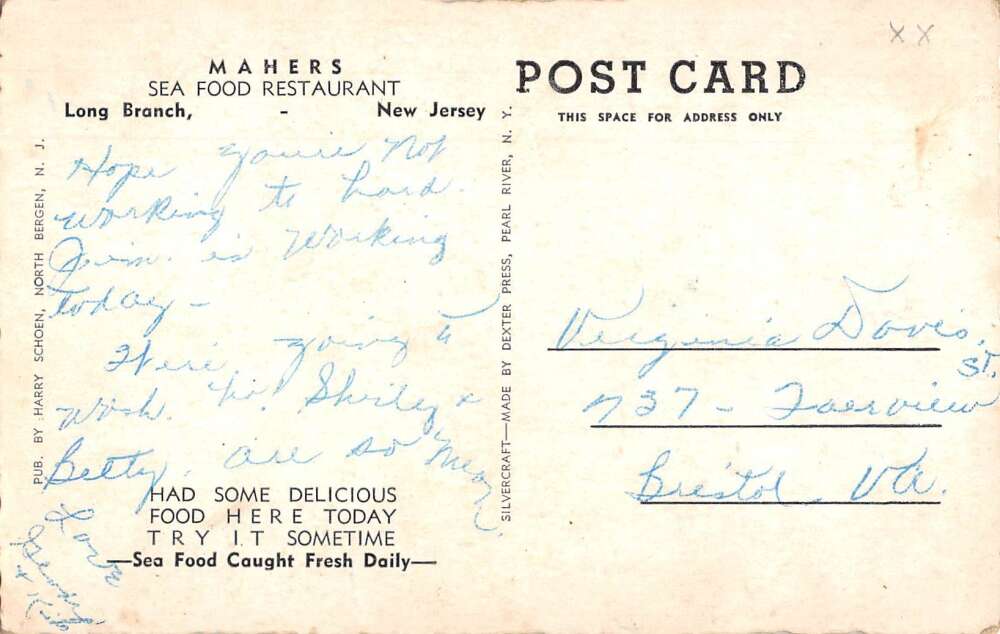 MAHERS
SEA FOOD RESTAURANT
Long Branch, - New Jersey
Hope youre not
working to hard.
Jim. is working
today -
Were going to
wash. ha! Shirley &
Betty. are so mean.
HAD SOME DELICIOUS
FOOD HERE TODAY
TRY IT SOMETIME
—Sea Food Caught Fresh Daily—
Love
& Kids
PUB. BY HARRY SCHOEN, NORTH BERGEN, N. J.
SILVERCRAFT—MADE BY DEXTER PRESS, PEARL RIVER, N. Y.
XX
POST CARD
THIS SPACE FOR ADDRESS ONLY
Verginia Davis,
737 - Fairview St.
Bristol Va.